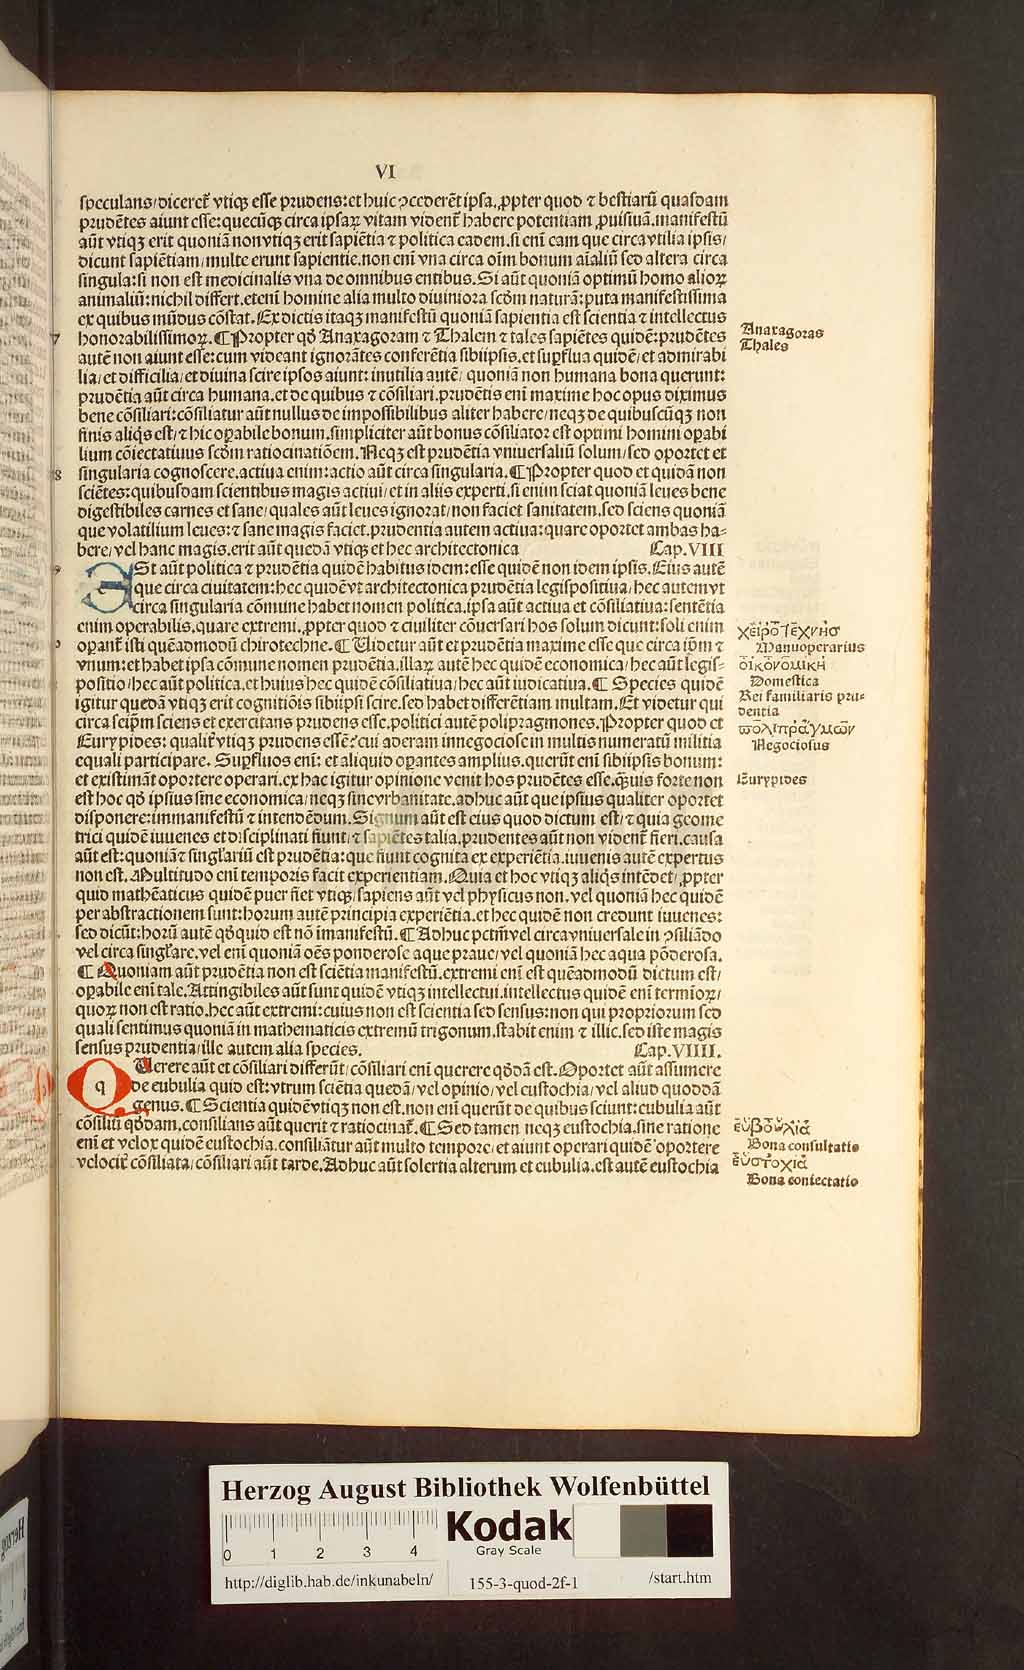 VI
speculans/diceret᷑ vtiqꝫ esse prudens: et huic ꝯcederēt ipsa. ꝓpter quod ⁊ bestiarū quasdam
prudētes aiunt esse: quecūqꝫ circa ipsaꝝ vitam vident᷑ habere potentiam ꝓuisiuā. manifestū
aūt vtiqꝫ erit quoniā non vtiqꝫ erit sapiētia ⁊ politica eadem. si enī eam que circa vtilia ipsis/
dicunt sapiētiam/multe erunt sapientie. non enī vna circa oīm bonum aīaliū sed altera circa
singula: si non est medicinalis vna de omnibus entibus. Si aūt quoniā optimū homo alioꝝ
animaliū: nichil differt. etenī homine alia multo diuiniora scd̄m naturā: puta manifestissima
ex quibus mūdus cōstat. Ex dictis itaqꝫ manifestū quoniā sapientia est scientia ⁊ intellectus
7 honorabilissimoꝝ. ¶ Propter qd̄ Anaxagoram ⁊ Thalem ⁊ tales sapiētes quidē: prudētes
Anaxagoras
Thales
autē non aiunt esse: cum videant ignorātes conferētia sibiipsis. et suꝑflua quidē/et admirabi
lia/et difficilia/et diuina scire ipsos aiunt: inutilia autē/ quoniā non humana bona querunt:
prudētia aūt circa humana. et de quibus ⁊ cōsiliari. prudētis enī maxime hoc opus diximus
bene cōsiliari: cōsiliatur aūt nullus de impossibilibus aliter habere/neqꝫ de quibuscūqꝫ non
finis aliq̄s est/⁊ hic oꝑabile bonum. simpliciter aūt bonus cōsiliator est optimi homini oꝑabi
lium cōiectatiuus scd̄m ratiocinatiōem. Neqꝫ est prudētia vniuersaliū solum/sed oportet et
8 singularia cognoscere. actiua enim: actio aūt circa singularia. ¶ Propter quod et quidā non
sciētes: quibusdam scientibus magis actiui/et in aliis experti. si enim sciat quoniā leues bene
digestibiles carnes et sane/quales aūt leues ignorat/non faciet sanitatem. sed sciens quoniā
que volatilium leues: ⁊ sane magis faciet. prudentia autem actiua: quare oportet ambas ha-
bere/vel hanc magis. erit aūt quedā vtiqꝫ et hec architectonica Cap. VIII
9 eSt aūt politica ⁊ prudētia quidē habitus idem: esse quidē non idem ipsis. Eius autē
que circa ciuitatem: hec quidē vt architectonica prudētia legispositiua/hec autem vt
circa singularia cōmune habet nomen politica. ipsa aūt actiua et cōsiliatiua: sentētia
enim operabilis. quare extremi. ꝓpter quod ⁊ ciuiliter cōuersari hos solum dicunt: soli enim
χειροτέχνησ
Manuoperarius
οἰκονομικὴ
Domestica
Rei familiaris pru-
dentia
πολιπράγμων
Negociosus
oꝑant᷑ isti quēadmodū chirotechne. ¶ Videtur aūt et prudētia maxime esse que circa ip̄m ⁊
vnum: et habet ipsa cōmune nomen prudētia. illaꝝ autē hec quidē economica/hec aūt legis-
positio/hec aūt politica. et huius hec quidē cōsiliatiua/hec aūt iudicatiua. ¶ Species quidē
igitur quedā vtiqꝫ erit cognitiōis sibiipsi scire. sed habet differētiam multam. Et videtur qui
circa seip̄m sciens et exercitans prudens esse. politici autē polipragmones. Propter quod et
Eurypides: qualit᷑ vtiqꝫ prudens essē? cui aderam innegociose in multis numeratū militia
equali participare. Suꝑfluos enī: et aliquid oꝑantes amplius. querūt enī sibiipsis bonum:
et existimāt oportere operari. ex hac igitur opinione venit hos prudētes esse. q̄uis forte non
Eurypides
est hoc qd̄ ipsius sine economica/neqꝫ sine vrbanitate. adhuc aūt que ipsius qualiter oportet
disponere: immanifestū ⁊ intendēdum. Signum aūt est eius quod dictum est/⁊ quia geome
trici quidē iuuenes et disciplinati fiunt/⁊ sapiētes talia. prudentes aūt non vident᷑ fieri. causa
aūt est: quoniā ⁊ singl̄ariū est prudētia: que fiunt cognita ex experiētia. iuuenis autē expertus
non est. Multitudo enī temporis facit experientiam. Quia et hoc vtiqꝫ aliq̄s intēdet/ꝓpter
quid mathēaticus quidē puer fiet vtiqꝫ/sapiens aūt vel physicus non. vel quoniā hec quidē
per abstractionem sunt: horum autē principia experiētia. et hec quidē non credunt iuuenes:
sed dicūt: horū autē qd̄quid est nō imanifestū. ¶ Adhuc pctm̄ vel circa vniuersale in ꝯsiliādo
vel circa singl̄are. vel enī quoniā oēs ponderose aque praue/vel quoniā hec aqua pōderosa.
¶ Quoniam aūt prudētia non est sciētia manifestū. extremi enī est quēadmodū dictum est/
oꝑabile enī tale. Attingibiles aūt sunt quidē vtiqꝫ intellectui. intellectus quidē enī termīoꝝ/
quoꝝ non est ratio. hec aūt extremi: cuius non est scientia sed sensus: non qui propriorum sed
quali sentimus quoniā in mathematicis extremū trigonum. stabit enim ⁊ illic. sed iste magis
sensus prudentia/ille autem alia species. Cap. VIIII.
qUerere aūt et cōsiliari differūt/cōsiliari enī querere qd̄dā est. Oportet aūt assumere
de eubulia quid est: vtrum sciētia quedā/vel opinio/vel eustochia/vel aliud quoddā
genus. ¶ Scientia quidē vtiqꝫ non est. non enī querūt de quibus sciunt: eubulia aūt
cōsiliū qd̄dam. consilians aūt querit ⁊ ratiocinat᷑. ¶ Sed tamen neqꝫ eustochia. sine ratione
εὐβουλία
Bona consultatio
εὐστοχιά
Bona coniectatio
enī et velox quidē eustochia. consiliātur aūt multo tempore/et aiunt operari quidē oportere
velocit᷑ cōsiliata/cōsiliari aūt tarde. Adhuc aūt solertia alterum et eubulia. est autē eustochia
Herzog August Bibliothek Wolfenbüttel
0 1 2 3 4
Kodak
Gray Scale
http://diglib.hab.de/inkunabeln/ 155-3-quod-2f-1 /start.htm